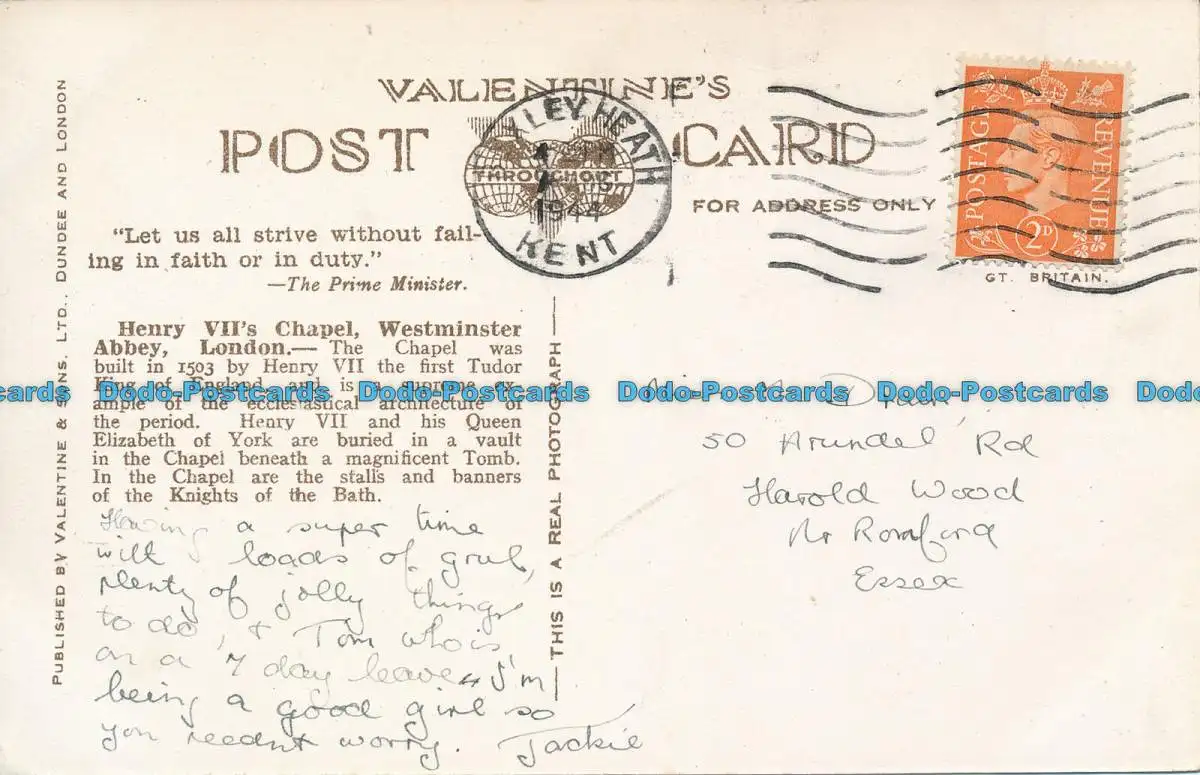 VALENTINE'S
POST CARD
THROUGHOUT
FOR ADDRESS ONLY
XLEY HEATH
1944
KENT
POSTAGE REVENUE
2D
GT. BRITAIN.
PUBLISHED BY VALENTINE & SONS. LTD., DUNDEE AND LONDON
"Let us all strive without fail-
ing in faith or in duty."
—The Prime Minister.
Henry VII's Chapel, Westminster
Abbey, London.— The Chapel was
built in 1503 by Henry VII the first Tudor
King of England and is a supreme ex-
ample of the ecclesiastical architecture of
the period. Henry VII and his Queen
Elizabeth of York are buried in a vault
in the Chapel beneath a magnificent Tomb.
In the Chapel are the stalls and banners
of the Knights of the Bath.
Having a super time
with loads of grub,
plenty of jolly things
to do, & Tom who is
on a 7 day leave. I'm
being a good girl so
you needn't worry. Jackie
THIS IS A REAL PHOTOGRAPH
50 Arundel Rd
Harold Wood
Nr Romford
Essex
Postcards Dodo-Postcards Dodo-Postcards Dodo-Postcards Dodo-Postcards Dodo